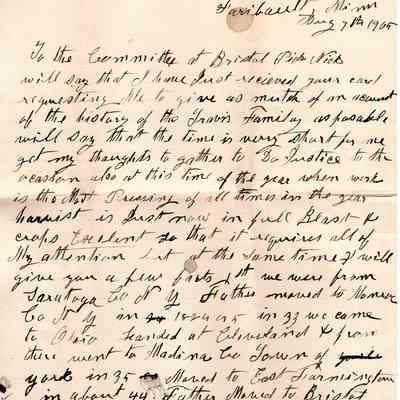 Faribault, Minn
Aug 7th 1905
To the Committee at Bristol Pick Nick
will say that I have Just recieved your card
requesting Me to give as mutch of an account
of the history of the Travis Familey as posable
will say that the time is very short for me
get my thoughts to gather to Do Justice to the
ocasion also at this time of the year when work
is the Most Pressing of all times in the year
harvist is Just now in full Blast &
crops Excelent so that it requires all of
My attention but at the same time I will
give you a few facts 1st we were from
Saratoga Co N Y Father moved to Monroe
Co N Y in 1824 or 5 in 33 we came
to Ohio Landed at Cleveland & from
there went to Madina Co Town of
york in 35 Moved to East Farmington
in about 44 Father Moved to Bristol